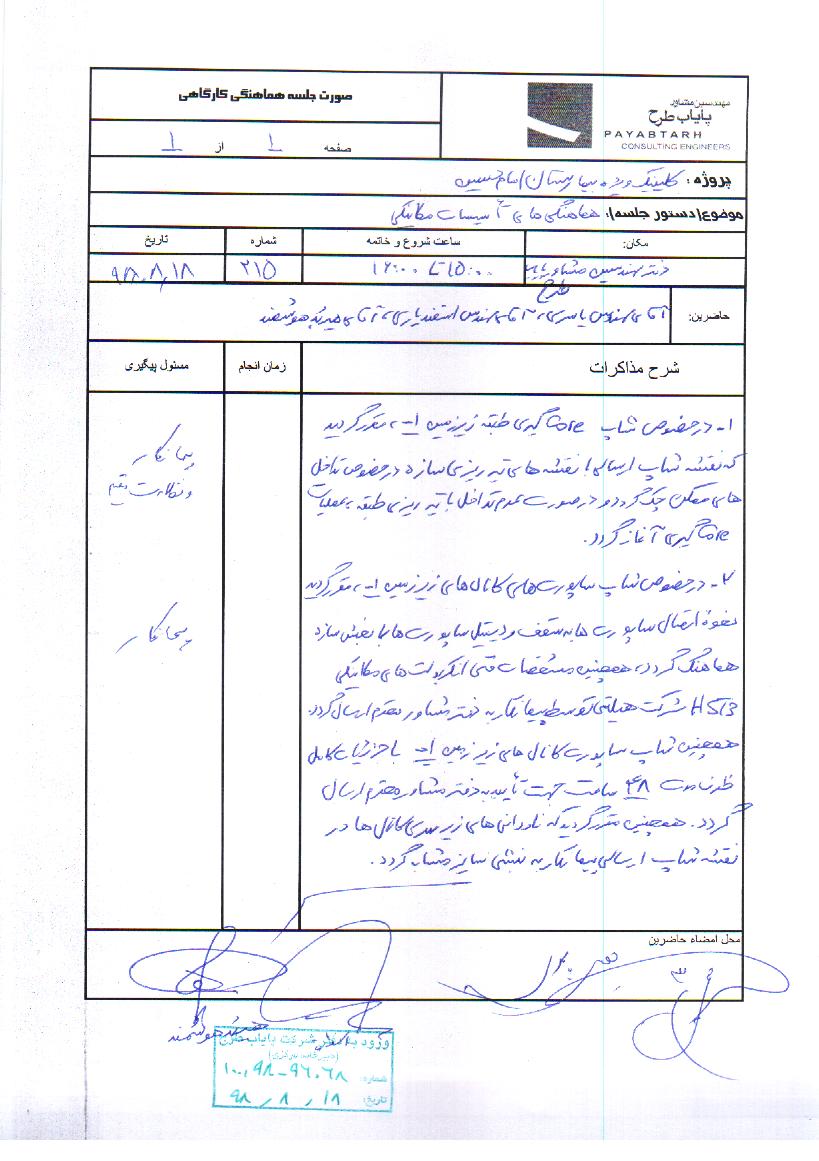 صورت جلسه هماهنگی کارگاهی
مهندسین مشاور
پایاب طرح
PAYABTARH
CONSULTING ENGINEERS
صفحه ۱ از ۱
پروژه: کلینیک ویژه بیمارستان امام حسین
موضوع(دستور جلسه): هماهنگی های تأسیسات مکانیکی
مکان: ساعت شروع و خاتمه شماره تاریخ
دفتر مهندسین مشاور پایاب طرح ۱۵:۰۰ تا ۱۶:۰۰ ۲۱۵ ۹۸.۸.۱۸
حاضرین: آقای مهندس یاسری، آقای مهندس اسفندیاری، آقای هوشمند
شرح مذاکرات زمان انجام مسئول پیگیری
۱- در خصوص شاپ Core گیری طبقه زیرزمین ۱-، مقرر گردید
که نقشه شاپ ارسالی با نقشه های تیر ریزی سازه در خصوص تداخل
های ممکن چک گردد و در صورت عدم تداخل با تیر ریزی طبقه، عملیات
Core گیری آغاز گردد.
پیمانکار
و نظارت مقیم
۲- در خصوص شاپ ساپورت های کانال های زیرزمین ۱-، مقرر گردید
نحوه اتصال ساپورت ها به سقف و دیتیل ساپورت ها با بخش سازه
هماهنگ گردد، همچنین مشخصات فنی انکربولت های مکانیکی
HST3 شرکت هیلتی توسط پیمانکار به دفتر مشاور محترم ارسال گردد.
همچنین شاپ ساپورت کانال های زیرزمین ۱- با جزئیات کامل
ظرف مدت ۴۸ ساعت جهت تأیید به دفتر مشاور محترم ارسال
گردد. همچنین مقرر گردید که ناودانی های زیرسری کانال ها در
نقشه شاپ ارسالی پیمانکار به نبشی سایز مشابه گردد.
پیمانکار
محل امضاء حاضرین
هوشمند
ورود به دفتر شرکت پایاب طرح
(دبیرخانه مرکزی)
شماره: ۱۰۰,۹۸-۹۶۰۶۸
تاریخ: ۹۸/۸/۱۸